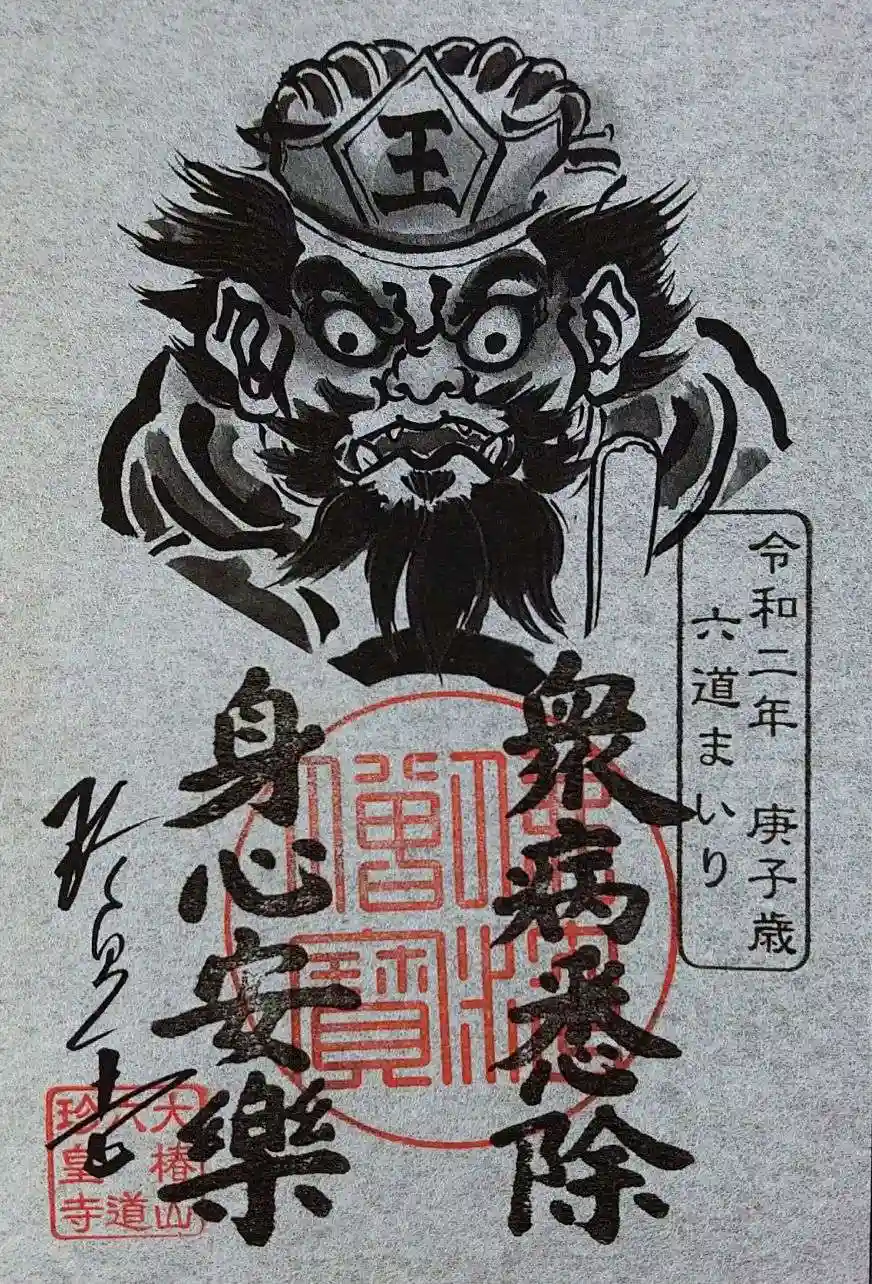 王
令和二年　庚子歳
六道まいり
衆病悉除
身心安樂
珍皇寺
大椿山
六道
珍皇寺
佛法僧寶